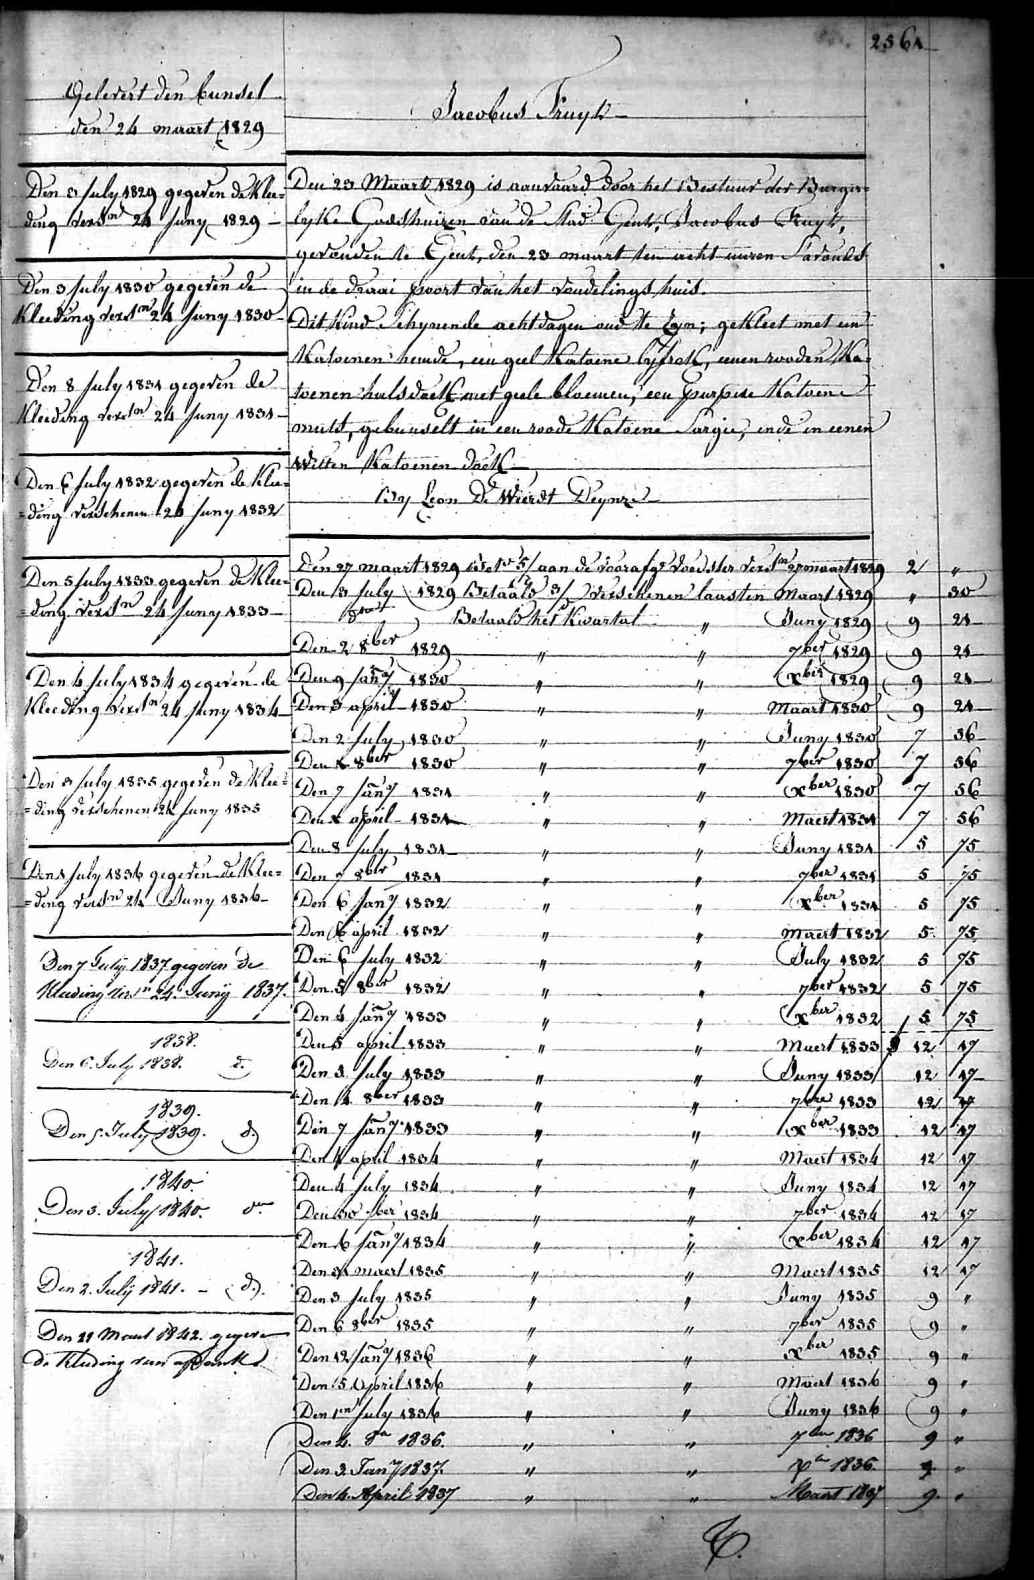 2561
Gelevert den bunsel
den 24 maart 1829
Jacobus Fruyt
Den 3 July 1829 gegeven de Klee=
ding versn 24 Juny 1829
Den 3 July 1830 gegeven de
Kleeding versn 24 Juny 1830
Den 8 July 1831 gegeven de
Kleeding versn 24 Juny 1831
Den 6 July 1832 gegeven de Klee=
=ding verschenen 24 Juny 1832
Den 5 July 1833 gegeven de Klee=
=ding versn 24 Juny 1833
Den 4 July 1834 gegeven de
Kleeding versn 24 Juny 1834
Den 3 July 1835 gegeven de Klee=
=ding verschenen 24 Juny 1835
Den 1 July 1836 gegeven de Klee=
=ding versn 24 Juny 1836
Den 7 Julij 1837 gegeven de
Kleeding versn 24 Junij 1837.
1838.
Den 6. July 1838. d.
1839.
Den 5. July 1839. d.
1840.
Den 3. July 1840. do
1841.
Den 2. Julij 1841. - d.
Den 21 Maart 1842. gegeven
de Kleeding van
Den 23 Maart 1829 is aanvaard door het Bestuur der Burger=
lyke Godshuizen van de Stad Gent, Jacobus Fruyt,
gevonden te Gent, den 23 maart ten acht uuren s'avonds
in de draai poort van het vondelingshuis.
Dit Kind schynende acht dagen oud te zyn; gekleet met een
Katoenen hemde, een geel Katoene lyfrok, eenen rooden Ka=
toenen halsdoek met geele bloemen, een purpere Katoene
muts, gebunselt in een roode Katoene Sargie, ende in eenen
Witten Katoenen doek
By Leon De Wierdt Deynze
Den 27 maart 1829 Betd 5/ aan de voorafge voedster versn 27 maart 1829 2 "
Den 3 July 1829 Betaald 3/ verschenen laasten Maart 1829 " 30
Betaald het Kwartal " Juny 1829 9 21
Den 2 8ber 1829 " " 7ber 1829 9 21
Den 9 Jany 1830 " " xber 1829 9 21
Den 3 april 1830 " " Maart 1830 9 21
Den 2 July 1830 " " Juny 1830 7 56
Den 1 8ber 1830 " " 7ber 1830 7 56
Den 7 Jany 1831 " " xber 1830 7 56
Den 1 april 1831 " " Maert 1831 7 56
Den 8 July 1831 " " Juny 1831 5 75
Den 7 8ber 1831 " " 7ber 1831 5 75
Den 6 Jany 1832 " " xber 1831 5 75
Den 6 april 1832 " " Maert 1832 5 75
Den 6 July 1832 " " July 1832 5 75
Den 5 8ber 1832 " " 7ber 1832 5 75
Den 4 Jany 1833 " " xber 1832 5 75
Den 5 april 1833 " " Maert 1833 12 17
Den 3 July 1833 " " Juny 1833 12 17
Den 4 8ber 1833 " " 7bre 1833 12 17
Den 7 Jany 1833 " " xber 1833 12 17
Den 4 april 1834 " " Maert 1834 12 17
Den 4 July 1834 " " Juny 1834 12 17
Den 30 7ber 1834 " " 7ber 1834 12 17
Den 6 Jany 1834 " " xber 1834 12 17
Den 31 maert 1835 " " Maert 1835 12 17
Den 3 July 1835 " " Juny 1835 9 "
Den 6 8ber 1835 " " 7ber 1835 9 "
Den 12 Jany 1836 " " xber 1835 9 "
Den 5 April 1836 " " Maert 1836 9 "
Den 1en July 1836 " " Juny 1836 9 "
Den 4. 8er 1836. " " 7ber 1836 9 "
Den 3. Jany 1837. " " xber 1836. 9 "
Den 4. April 1837 " " Maart 1837 9. "